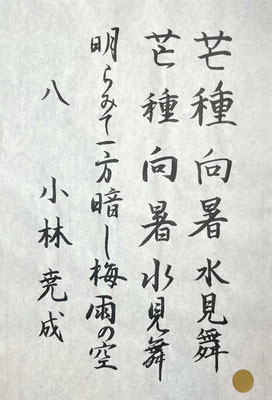 芒種向暑水見舞
芒種向暑水見舞
明らみて一方暗し梅雨の空
八 小林尭成